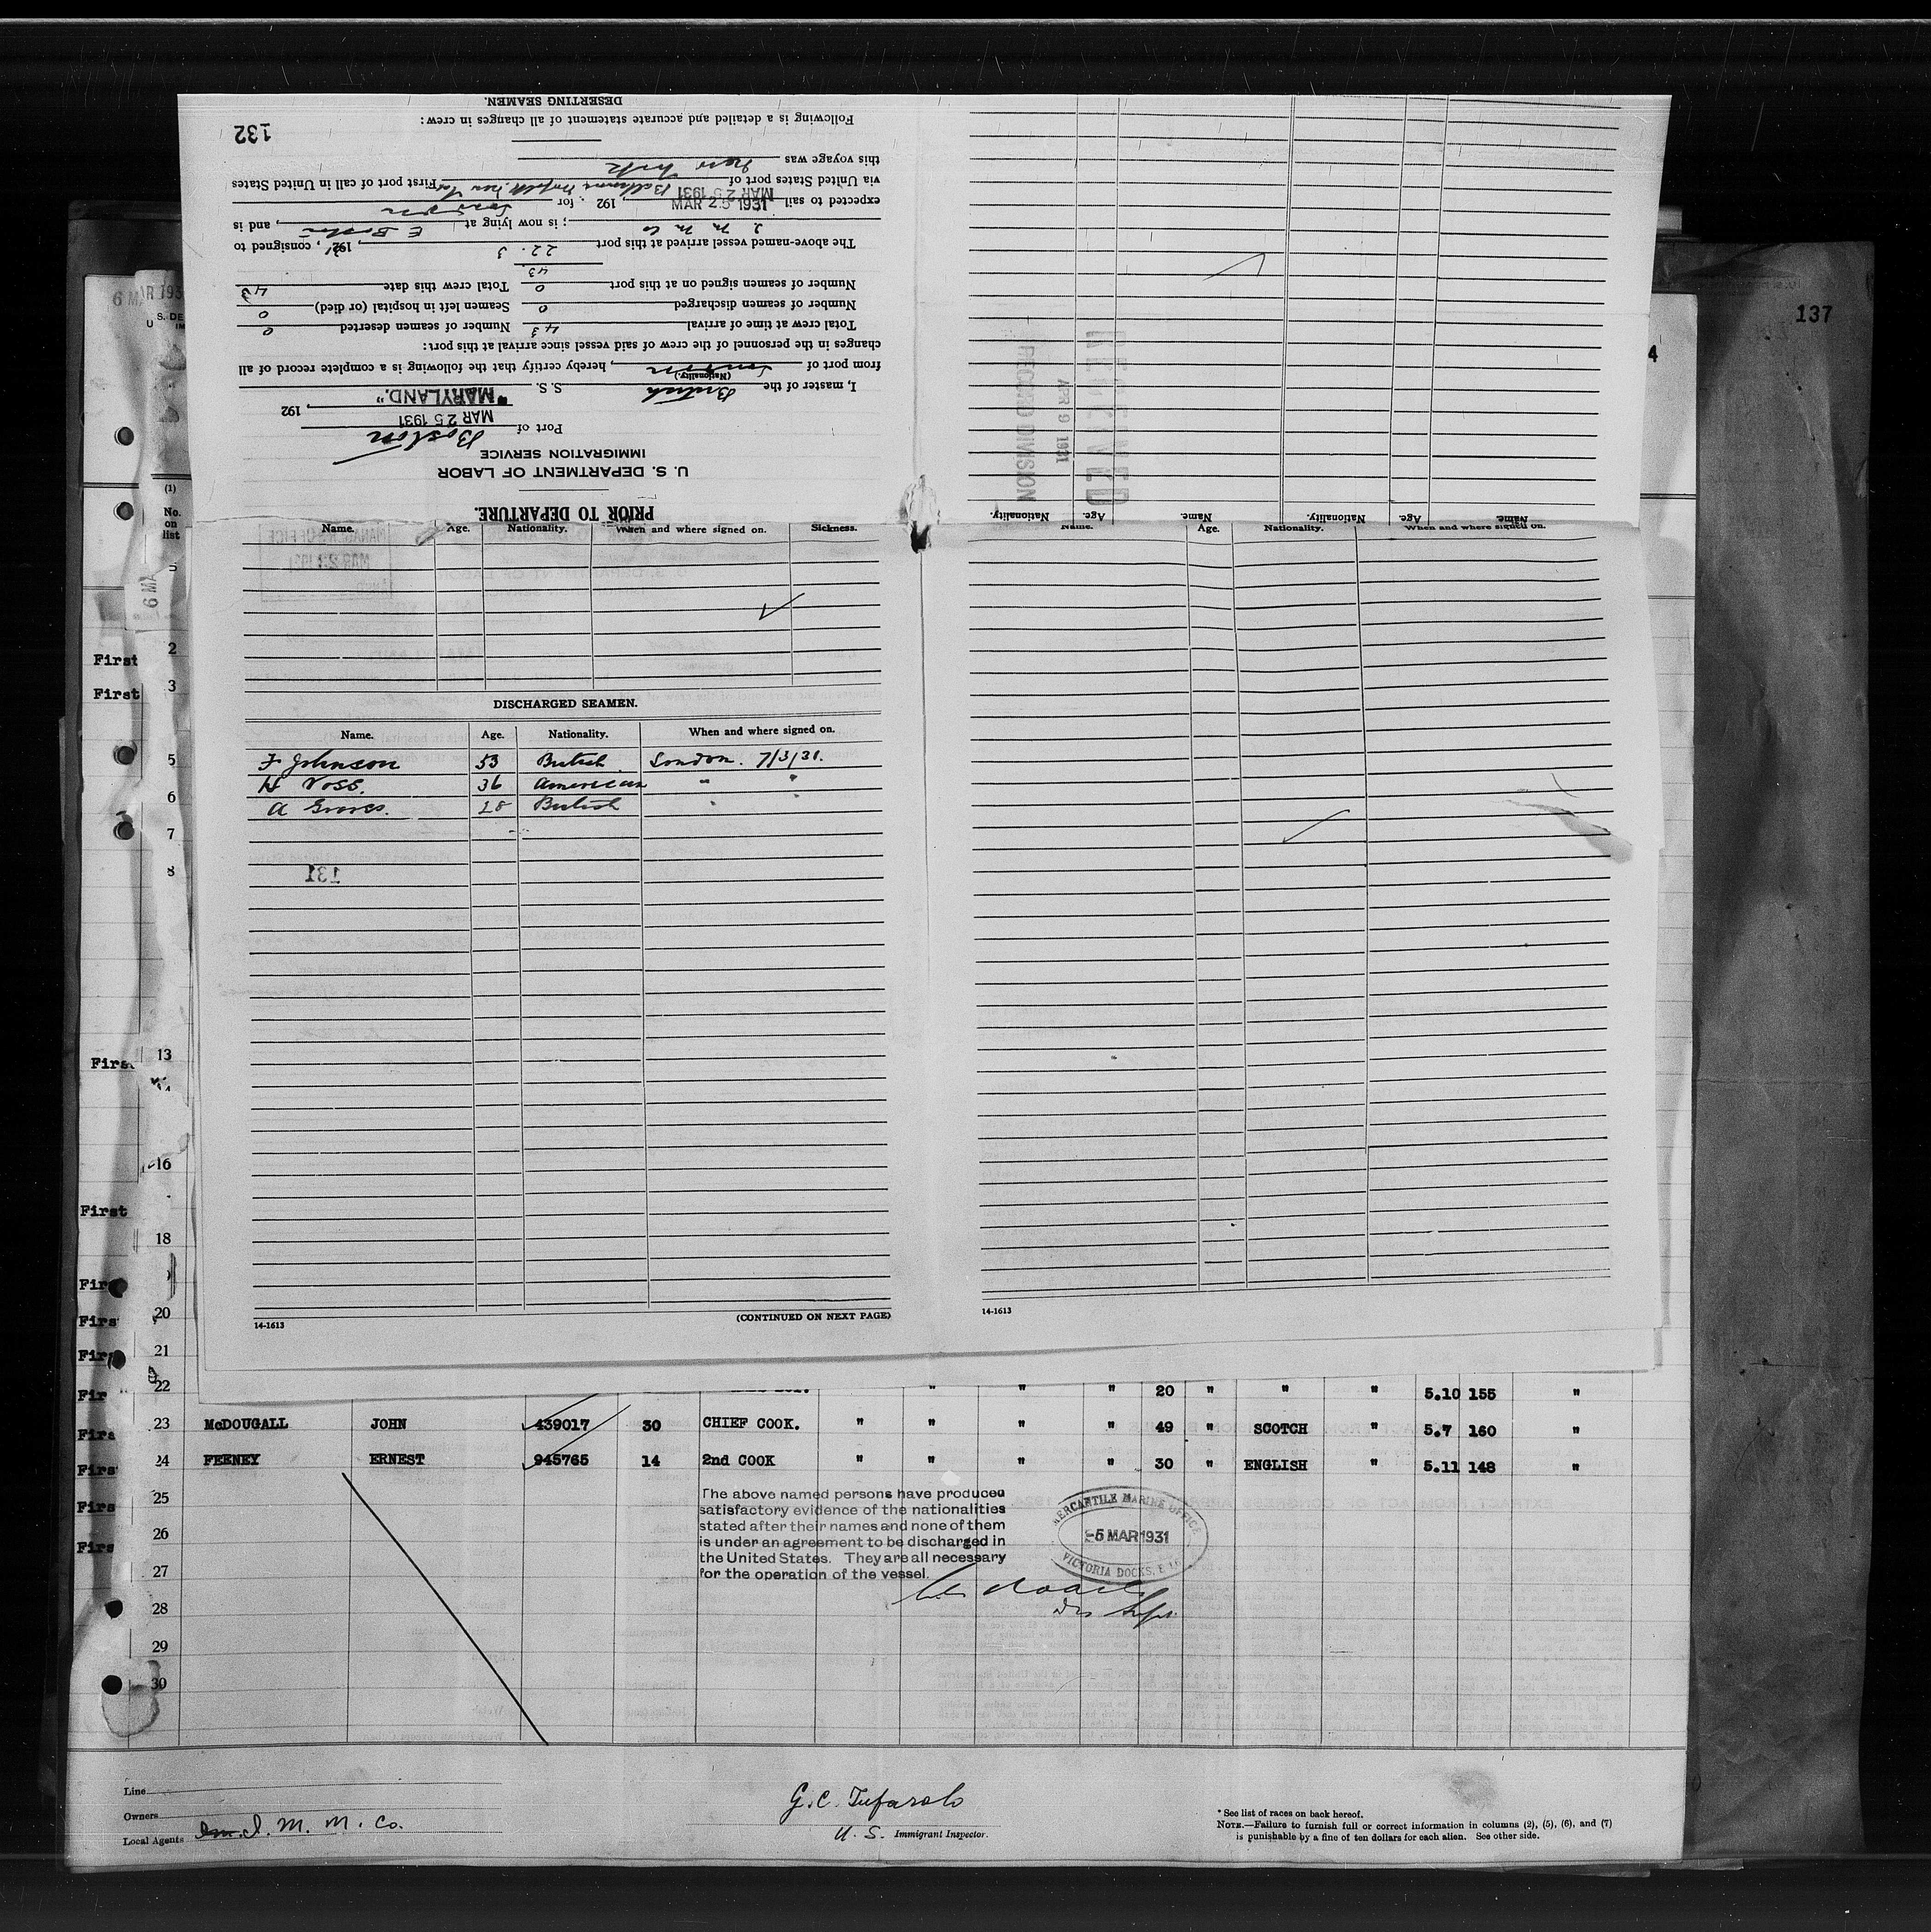 DESERTING SEAMEN.
Following is a detailed and accurate statement of all changes in crew:
132
this voyage was New York
via United States port of Baltimore Norfolk New York First port of call in United States
expected to sail MAR 25 1931, 192 for London
MAR 25 1931
I M M Co; is now lying at E Boston, and is
The above-named vessel arrived at this port 22. 3, 192, consigned to
43
Number of seamen signed on at this port 0 Total crew this date 43
Number of seamen discharged 0 Seamen left in hospital (or died) 0
Total crew at time of arrival 43 Number of seamen deserted 0
changes in the personnel of the crew of said vessel since arrival at this port:
from port of London, hereby certify that the following is a complete record of all
(Nationality.)
I, master of the British S. S. "MARYLAND."
MAR 25 1931, 192
Port of Boston
IMMIGRATION SERVICE
U. S. DEPARTMENT OF LABOR
PRIOR TO DEPARTURE.
RECEIVED
APR 9 1931
RECORD DIVISION
Name. Age. Nationality. Name. Age. Nationality.
137
4
6 MAR 193
S. DE
U
IM
(1)
No.
on
list
6 MA
Name. Age. Nationality. When and where signed on. Sickness.
Name. Age. Nationality. When and where signed on.
MANAGERS OFFICE
MAR 21 1931
DISCHARGED SEAMEN.
Name. Age. Nationality. When and where signed on.
F Johnson 53 British London. 7/3/31.
H Voss. 36 American " "
A Groves. 28 British " "
131
14-1613
(CONTINUED ON NEXT PAGE)
14-1613
First 2
First 3
5
6
7
8
First 13
16
First
18
First
First 20
First 21
22 " " " 20 " " " 5.10 155 "
23 McDOUGALL JOHN 439017 30 CHIEF COOK. " " " " 49 " SCOTCH " 5.7 160 "
24 FEENEY ERNEST 945765 14 2nd COOK " " " " 30 " ENGLISH " 5.11 148 "
25
26
27
28
29
30
The above named persons have produced
satisfactory evidence of the nationalities
stated after their names and none of them
is under an agreement to be discharged in
the United States. They are all necessary
for the operation of the vessel.
MERCANTILE MARINE OFFICE
-5 MAR 1931
VICTORIA DOCKS, E 16
Line
Owners
Local Agents I. M. M. Co.
G. C. Tufarolo
U. S. Immigrant Inspector.
* See list of races on back hereof.
NOTE.—Failure to furnish full or correct information in columns (2), (5), (6), and (7)
is punishable by a fine of ten dollars for each alien. See other side.